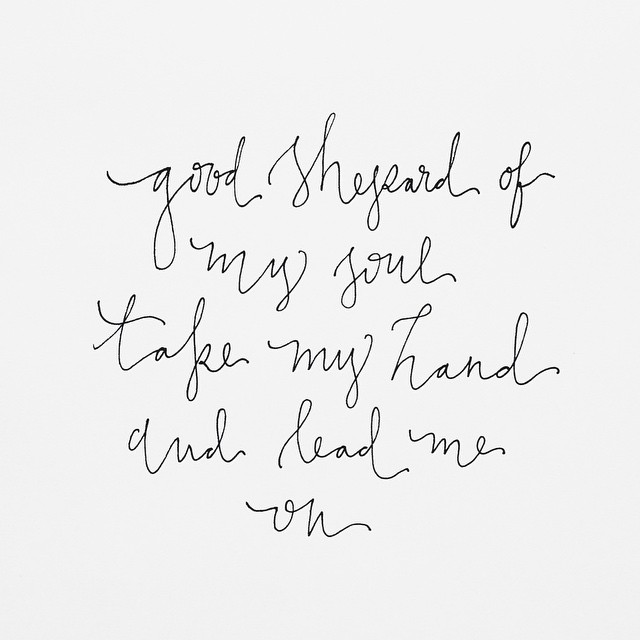 good shepard of
my soul
take my hand
and lead me
on